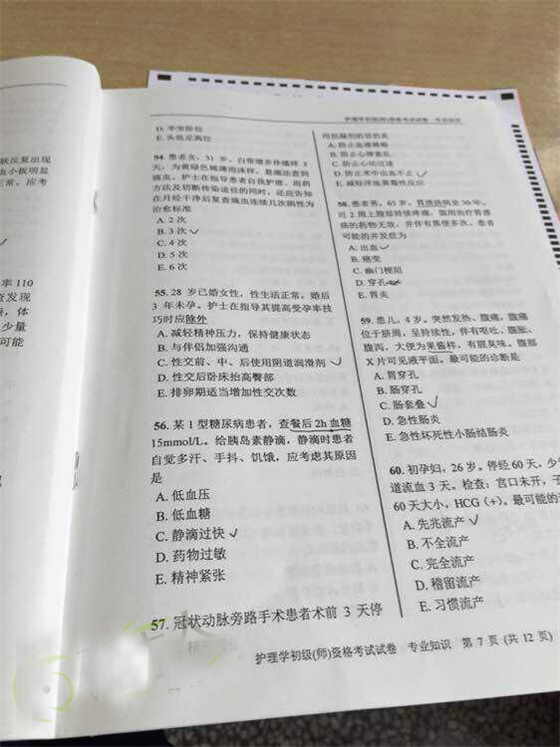 状反复出现
血小板明显
正常。应考
率 110
查发现
，体
少量
可能
护理学初级(师)资格考试试卷 专业知识
D. 半坐卧位
E. 头低足高位
54. 患者女，31 岁。白带增多伴瘙痒 3
天，为黄绿色稀薄泡沫样，悬滴法查到
滴虫。护士在指导患者自我护理、用药
方法及切断传染途径的同时，还应告知
在月经干净后复查滴虫连续几次阴性为
治愈标准
A. 2 次
B. 3 次 ✓
C. 4 次
D. 5 次
E. 6 次
55. 28 岁已婚女性，性生活正常，婚后
3 年未孕。护士在指导其提高受孕率技
巧时应除外
A. 减轻精神压力，保持健康状态
B. 与伴侣加强沟通
C. 性交前、中、后使用阴道润滑剂 ✓
D. 性交后卧床抬高臀部
E. 排卵期适当增加性交次数
56. 某 1 型糖尿病患者，查餐后 2h 血糖
15mmol/L。给胰岛素静滴，静滴时患者
自觉多汗、手抖、饥饿，应考虑其原因
是
A. 低血压
B. 低血糖
C. 静滴过快 ✓
D. 药物过敏
E. 精神紧张
57. 冠状动脉旁路手术患者术前 3 天停
用抗凝剂的目的是
A. 防止血液稀释
B. 防止心律紊乱
C. 防止心动过速
D. 防止术中出血不止 ✓
E. 减轻洋地黄毒性反应
58. 患者男，65 岁。胃溃疡病史 30 年，
近 2 周上腹部持续疼痛，服用治疗胃溃
疡的药物无效，并伴有粪便多次，患者
可能的并发症为
A. 出血 ✓
B. 癌变
C. 幽门梗阻
D. 穿孔
E. 胃炎
59. 患儿，4 岁。突然发热、腹痛，腹痛
位于脐周，呈持续性，伴有呕吐、腹胀、
腹泻，大便为果酱样，有腥臭味，腹部
X 片可见液平面。最可能的诊断是
A. 胃穿孔
B. 肠穿孔
C. 肠套叠 ✓
D. 急性肠炎
E. 急性坏死性小肠结肠炎
60. 初孕妇，26 岁。停经 60 天，少
道流血 3 天。检查：宫口未开，子
60 天大小，HCG（+）。最可能的
A. 先兆流产 ✓
B. 不全流产
C. 完全流产
D. 稽留流产
E. 习惯流产
护理学初级(师)资格考试试卷 专业知识 第 7 页 (共 12 页)